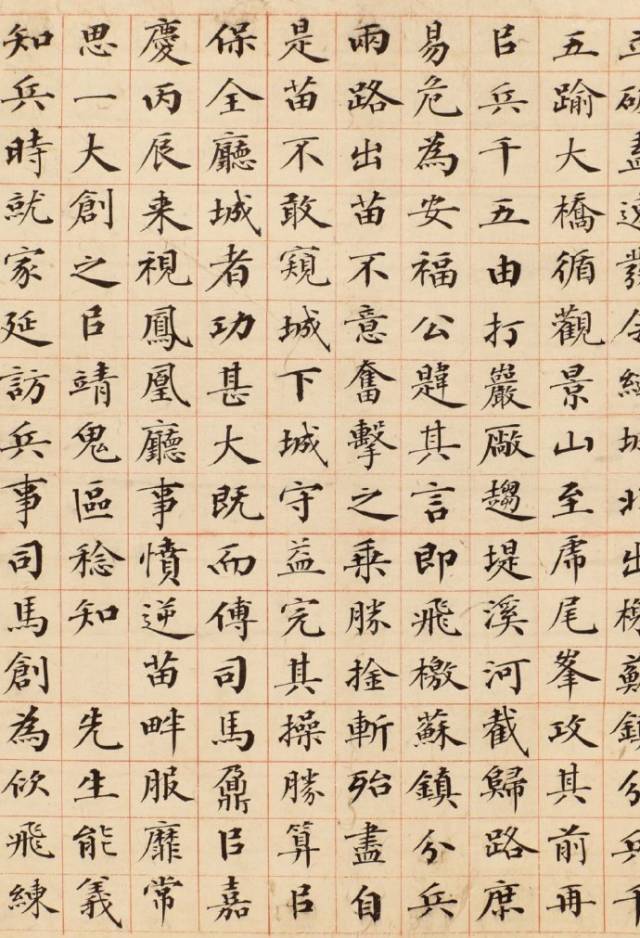 盡發令城北出鎮分兵千
五踰大橋循觀景山至虎尾峯攻其前再
㠯兵千五由打巖厰趨堤溪河截歸路庶
易危為安福公韙其言即飛檄蘇鎮分兵
兩路出苗不意奮擊之乘勝捦斬殆盡自
是苗不敢窺城下城守益完其操勝算㠯
保全廳城者功甚大既而傅司馬鼐㠯嘉
慶丙辰来視鳳凰廳事憤逆苗畔服靡常
思一大創之㠯靖鬼區稔知 先生能義
知兵時就家延訪兵事司馬創為佽飛練